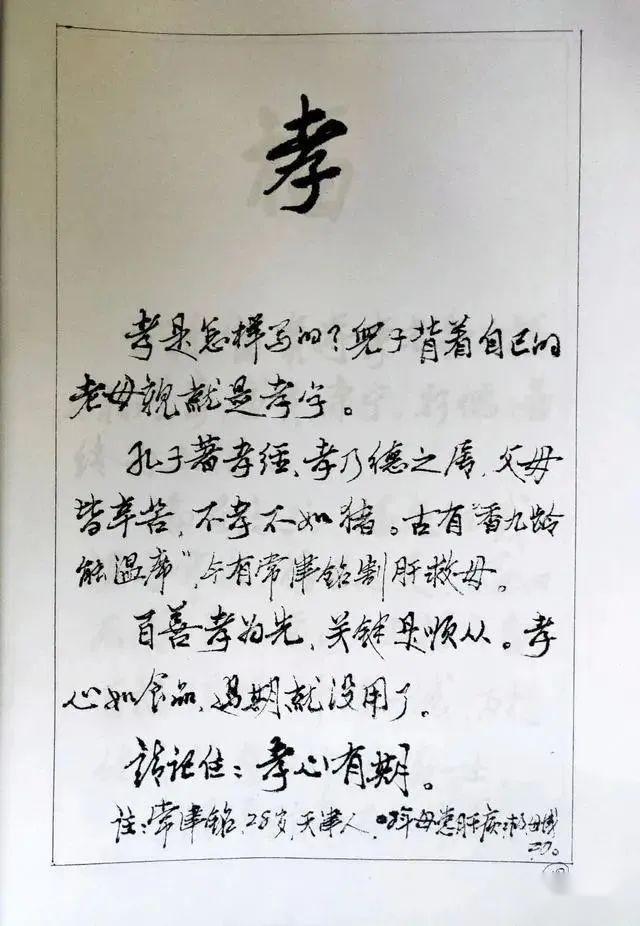 孝
孝是怎样写的?儿子背着自己的
老母親就是孝字。
孔子著孝经、孝乃德之
父母
皆辛苦,不孝不如猪。古有“香九龄
能温席”,今有常津铭割肝救母。
百善孝为先,关键是顺从。孝
心如食品,过期就没用了。
請记住:孝心有期。
註:常津铭,28岁,天津人,
母患肝